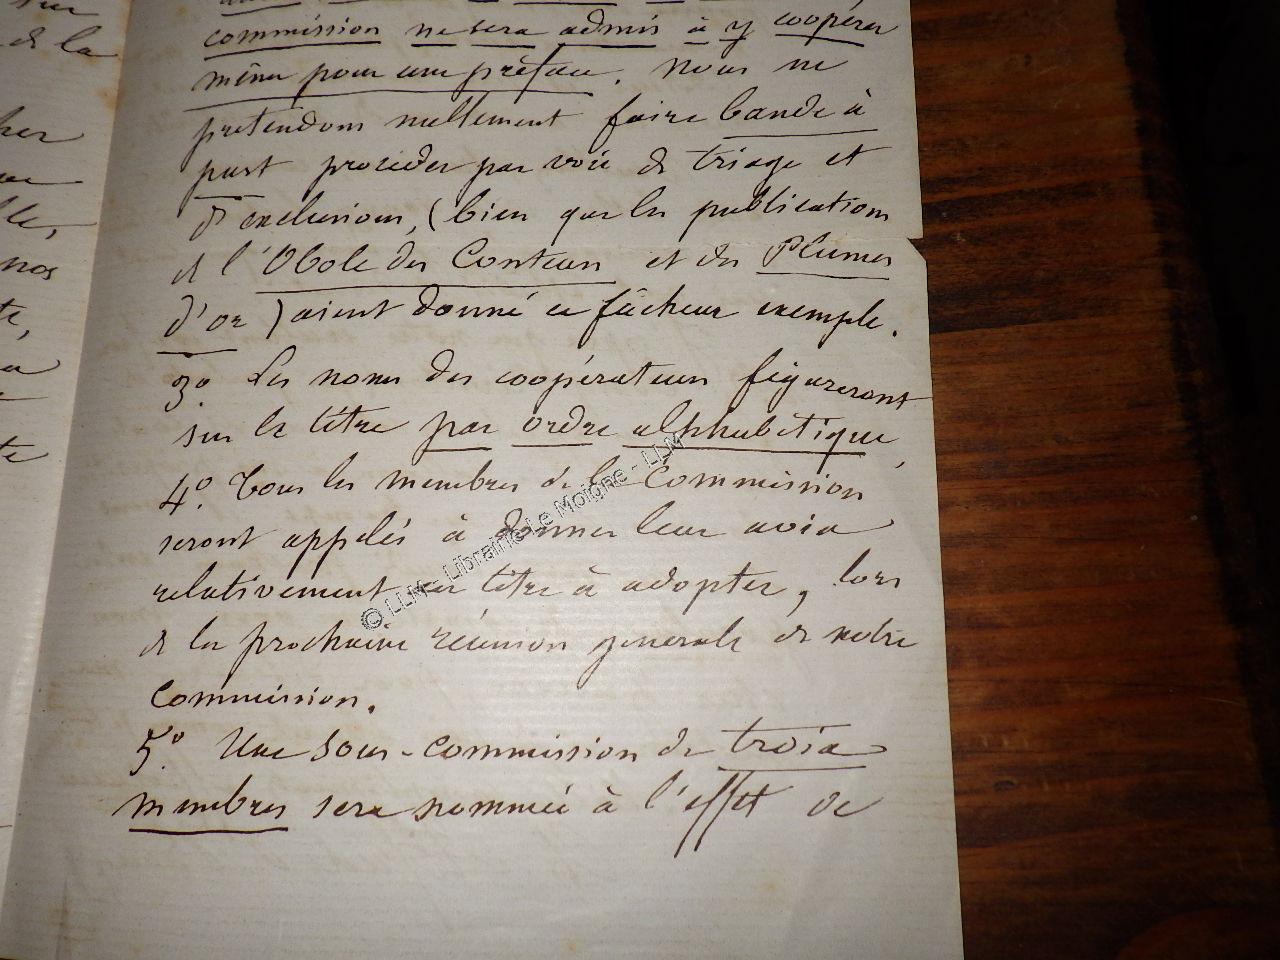 commission ne sera admis à y coopérer
même pour une préface. Nous ne
prétendons nullement faire bande à
part procéder par voie de triage et
d'exclusions, (bien que les publications
de l'Obole des Conteurs et des Plumes
d'or) aient donné ce fâcheux exemple.
3º. Les noms des coopérateurs figureront
sur le titre par ordre alphabétique,
4º. Tous les membres de la Commission
seront appelés à donner leur avis
relativement au titre à adopter, lors
de la prochaine réunion générale de notre
Commission.
5º. Une sous-commission de trois
membres sera nommée à l'effet de
sur
de la
nos
© LLM - Librairie Le Moigne - LLM